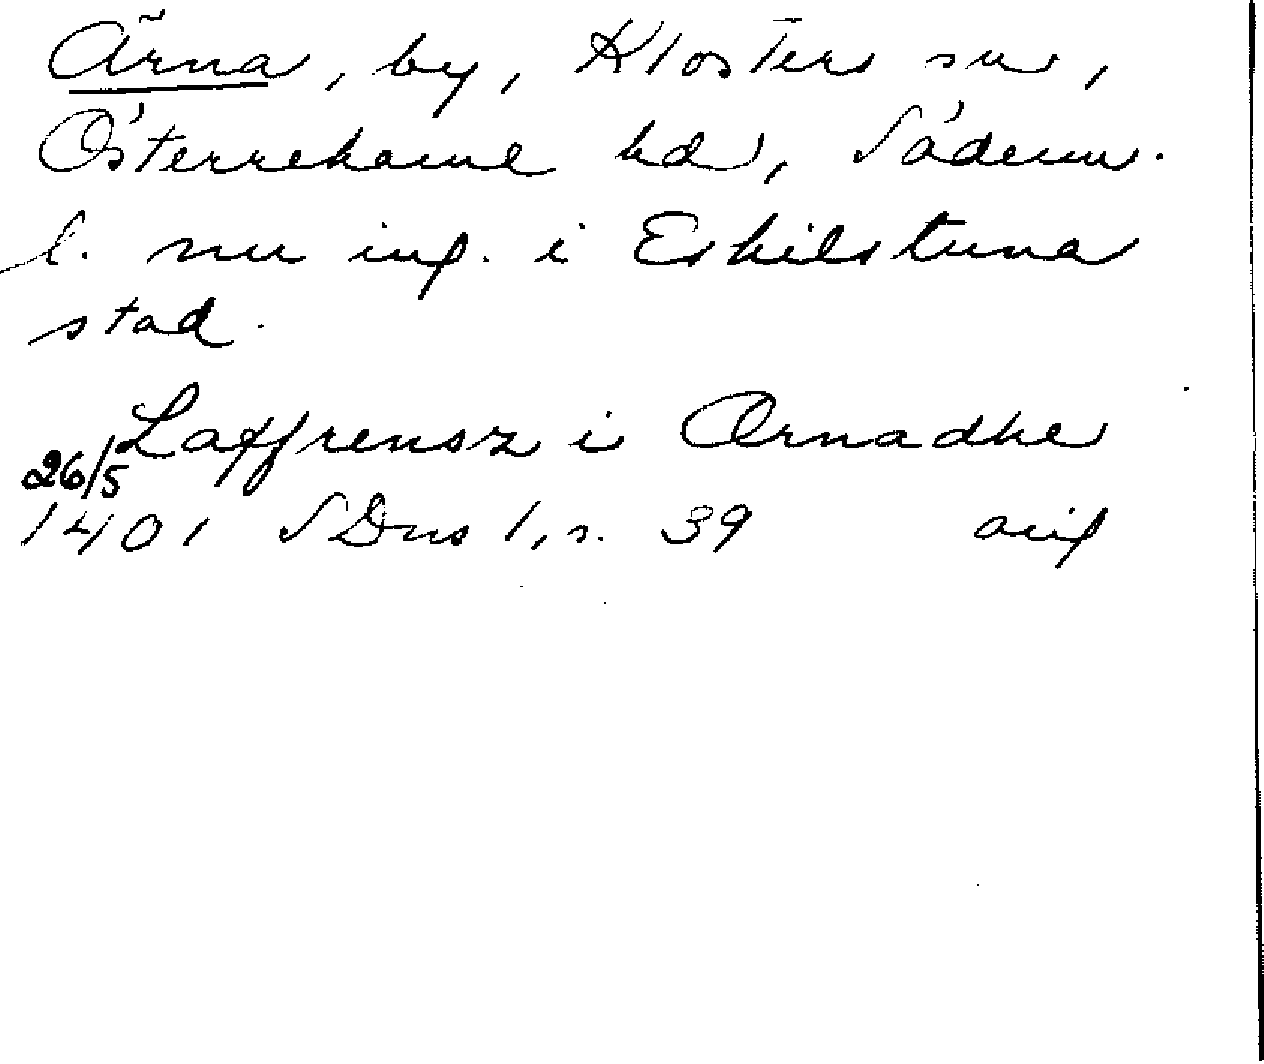 Ärna, by, Klosters sn,
Österrekarne hd, Söderm.
l. nu ing. i Eskilstuna
stad.
Laffrensz i Ærnadhe
26/5
1401 SDns 1, s. 39 avs